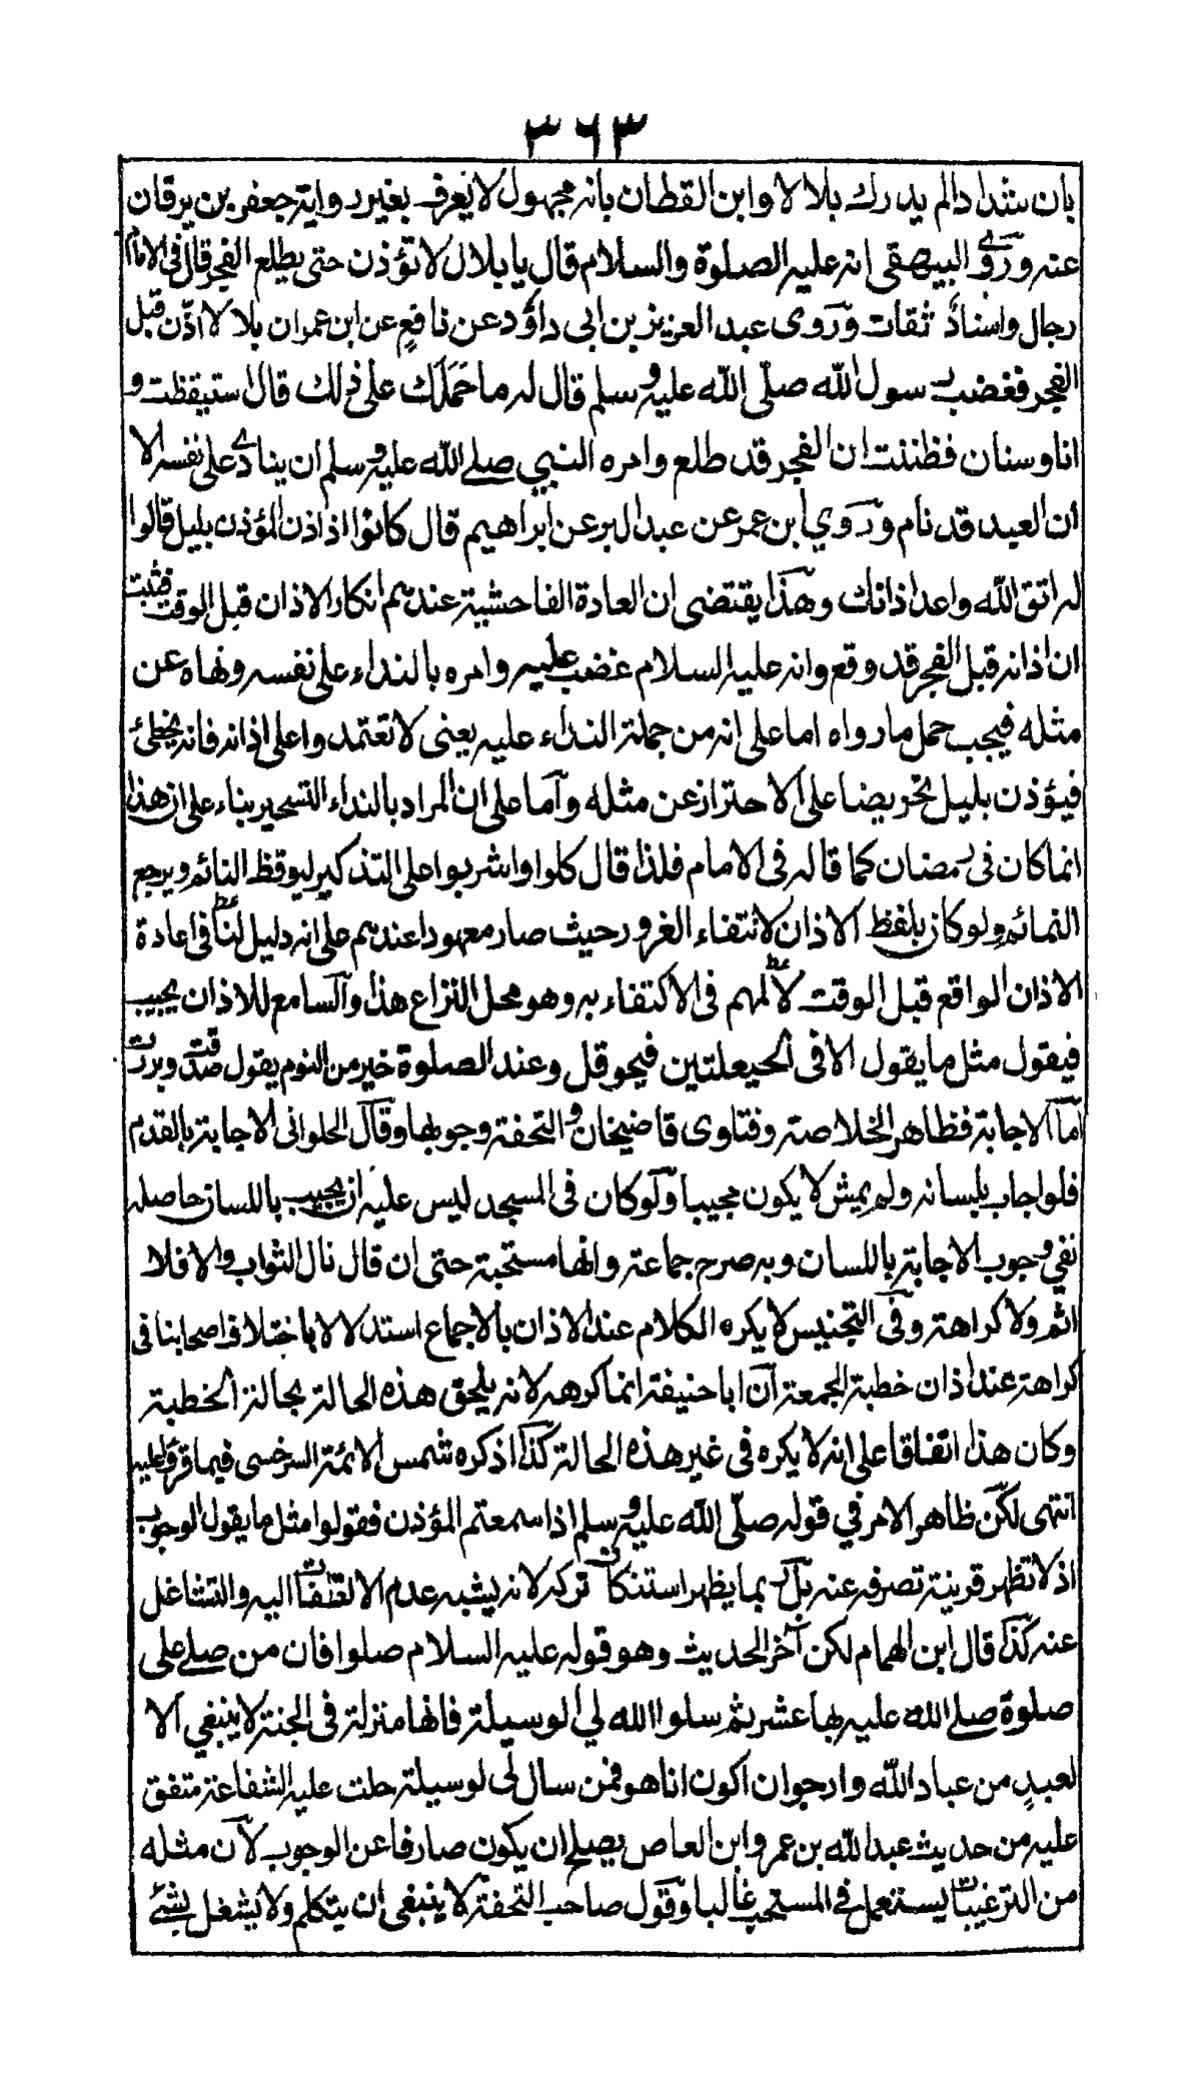 ٣٦٣
بان شدادالم يدرك بلالا وابن القطان بانه مجهول لا يعرف بغير رواية جعفر بن برقان
عنه وروى البيهقى انه عليه الصلوة والسلام قال يا بلال لا تؤذن حتى يطلع الفجر قال فى الامام
رجال واسناده ثقات وروى عبد العزيز بن ابى داؤد عن نافع عن ابن عمر ان بلالا اذّن قبل
الفجر فغضب رسول الله صلّى الله عليه وسلم قال له ما حَمَلَكَ على ذلك قال استيقظت و
انا وسنان فظننت ان الفجر قد طلع وامره النبي صلے الله عليه وسلم ان ينادى على نفسه الا
ان العبد قد نام وروي ابن عمر عن عبد البر عن ابراهيم قال كانوا اذا اذن المؤذن بليل قالوا
له اتق الله واعد اذانك وهذا يقتضى ان العادة الفاحشية عندهم انكار الاذان قبل الوقت فثبت
ان اذانه قبل الفجر قد وقع وانه عليه السلام غضب عليه وامره بالنداء على نفسه ونهاه عن
مثله فيجب حمل ما رواه اما على انه من جملة النداء عليه يعنى لا تعتمدوا على اذانه فانه يخطئ
فيؤذن بليل تحريضا على الاحتراز عن مثله وآما على ان المراد بالنداء التسحير بناء على ان هذا
انما كان فى رمضان كما قاله فى الامام فلذا قال كلوا واشربوا على التذكير ليوقظ النائم ويرجع
النمائم ولو كان بلفظ الاذان لانتفاء الغرور حيث صار معهودا عندهم على انه دليل لنا فى اعادة
الاذان الواقع قبل الوقت لا لهم فى الاكتفاء به وهو محل النزاع هذا وآلسامع للاذان يجيب
فيقول مثل ما يقول الا فى الحيعلتين فيحوقل وعند الصلوة خير من النوم يقول صدقت وبررت
امّا الاجابة فظاهر الخلاصة وفتاوى قاضيخان والتحفة وجوبها وقال الحلوانى الاجابة بالقدم
فلو اجاب بلسانه ولم يمش لا يكون مجيبا ولو كان فى المسجد ليس عليه ان يجيب باللسان حاصله
نفي وجوب الاجابة باللسان وبه صرح جماعة وانها مستحبة حتى ان قال نال الثواب والا فلا
اثم ولا كراهة وفى التجنيس لا يكره الكلام عند الاذان بالاجماع استدلالا باختلاف اصحابنا فى
كراهة عند اذان خطبة الجمعة آن ابا حنيفة انما كرهه لانه يلحق هذه الحالة بحالة الخطبة
وكان هذا اتفاقا على انه لا يكره فى غير هذه الحالة كذا ذكره شمس الائمة السرخسى فيما قرؤ عليه
انتهى لكن ظاهر الامر في قوله صلّى الله عليه وسلم اذا سمعتم المؤذن فقولوا مثل ما يقول الوجوب
اذ لا تظهر قرينة تصرفه عنه بل ربما يظهر استنكار تركه لانه يشبه عدم الالتفات اليه والتشاغل
عنه كذا قال ابن الهمام لكن آخر الحديث وهو قوله عليه السلام صلوا فان من صلے على
صلوة صلے الله عليه بها عشر ثم سلوا الله لي الوسيلة فانها منزلة فى الجنة لا ينبغي الا
لعبدٍ من عباد الله وارجوا ان اكون انا هو فمن سال لى لوسيلة حلت عليه الشفاعة متفق
عليه من حديث عبد الله بن عمر وابن العاص يصلح ان يكون صارفا عن الوجوب لآن مثله
من الترغيبات يستعمل فى المستحب غالبا وقول صاحب التحفة لا ينبغى ان يتكلم ولا يشغل بشئ